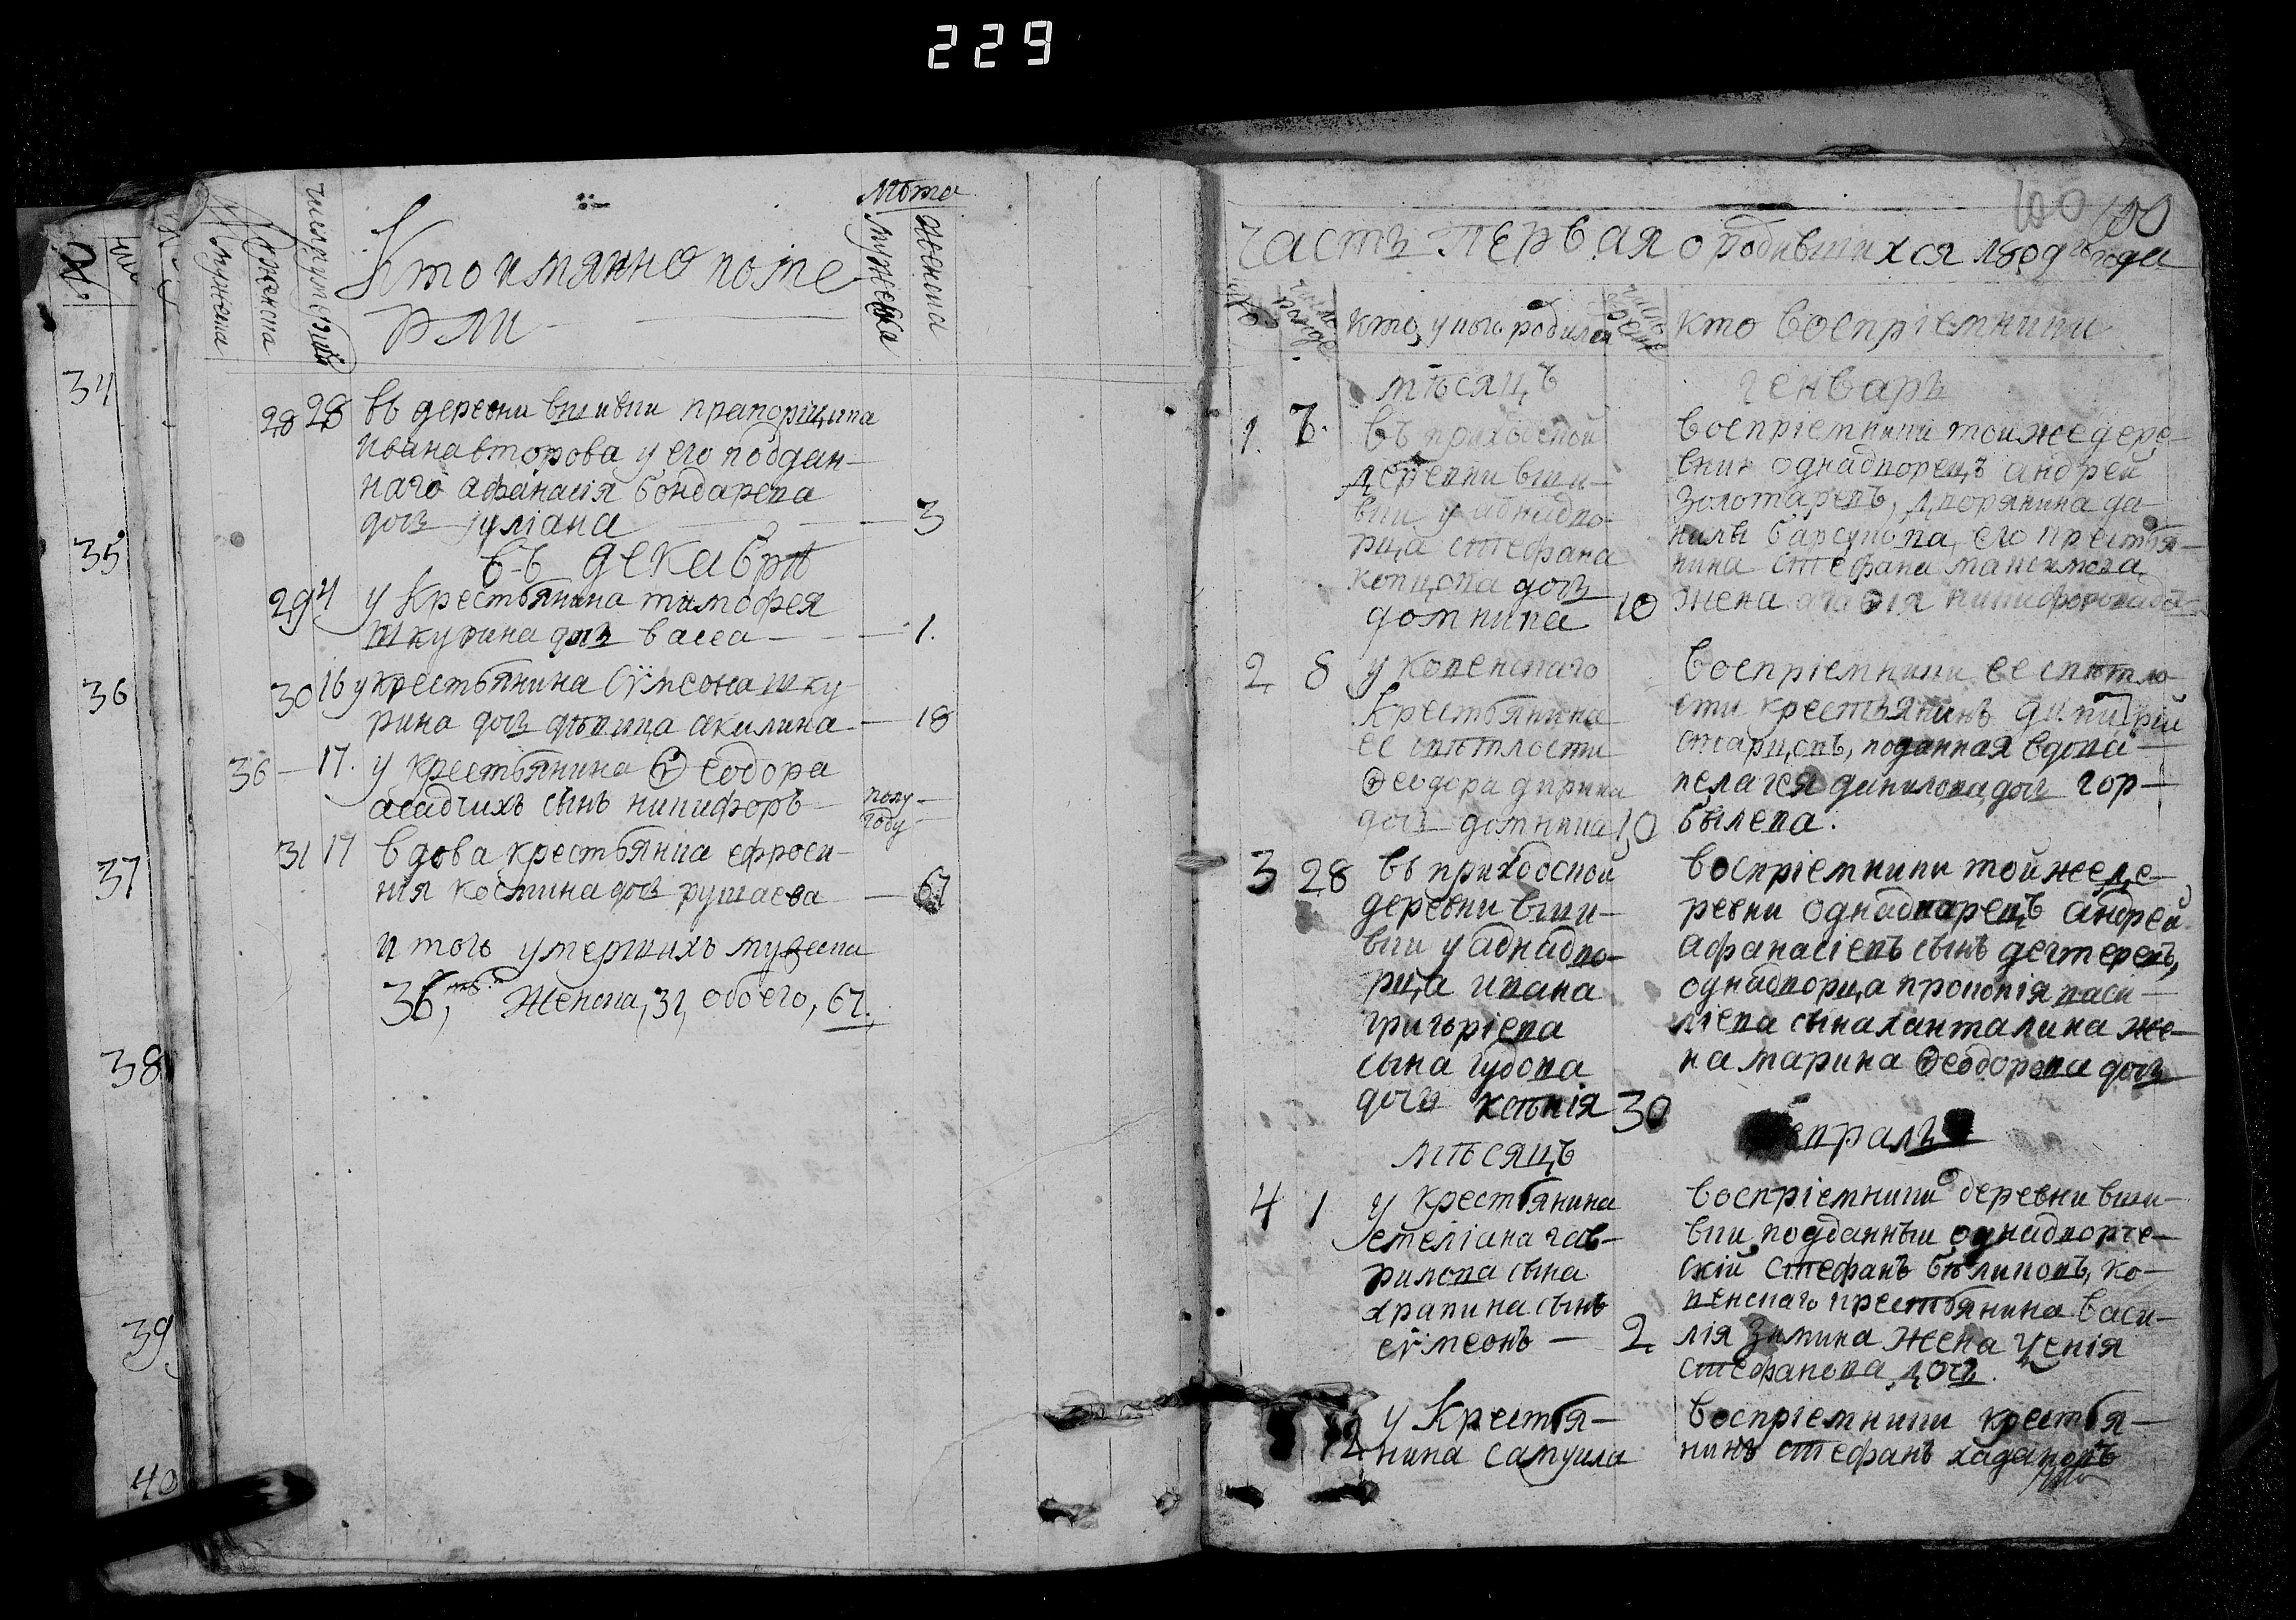 229
34
35
36
37
38
39
40
мужеска
женска
Лѣта
мужеска
женска
Кто имянно поме
рли
28 28 въ деревни вшивки прапорщика
ивана второва у его поддан-
наго афанасія бондарева
дочь іуліана — 3
въ декабрѣ
29 4 у крестьянина тимофея
шкурина дочь васса — 1.
30 16 у крестьянина сѵмеона шку
рина дочь дѣвица акилина — 18
36 — 17. у крестьянина Ѳеодора
асадчихъ сынъ никифоръ — полу
году
31 17 вдова крестьянка ефроси-
нія костина дочь рушаева — 67
итого умершихъ мужеска
36, женска, 31, обоего, 67.
100
часть первая о родившихся 180 года
кто у кого родился
кто воспріемники
мѣсяцъ генварь
1. 7. въ приходской
деревни вши-
вки у аднадво-
рца стефана
копцова дочь
домника 10
воспріемники тойже дере-
вни однадворецъ андрей
золотаревъ, дворянина да-
нилы барсукова, его крестья-
нина стефана максимова
жена агаѳія никифорова до
2 8 у коренскаго
крестьянина
ее свѣтлости
Ѳеодора дирина
дочь домника 10
воспріемники ее свѣтло
сти крестьянинъ димитрій
старцовъ, поданная вдова
пелагея данилова дочь гор-
былева.
3 28 въ приходской
деревни вши-
вки у аднадво-
рца ивана
григоріева
сына губова
дочь ксѣнія 30
воспріемники тойже де-
ревни однадварецъ андрей
афанасіевъ сынъ дегтеревъ,
однадворца прокопія васи-
ліева сына ханталина же-
на марина Ѳеодорова дочь
мѣсяцъ февраль
4 1 у крестьянина
стеліана гав-
рилова сына
храпина сынъ
сѵмеонъ — 2
воспріемники деревни вши-
вки подданный однадворче-
скій стефанъ бѣликовъ, ко-
ренскаго крестьянина васи-
лія зимина жена ксенія
стефанова дочь.
12 у крестья-
нина самуила
воспріемники крестья-
нинъ стефанъ хадаковъ